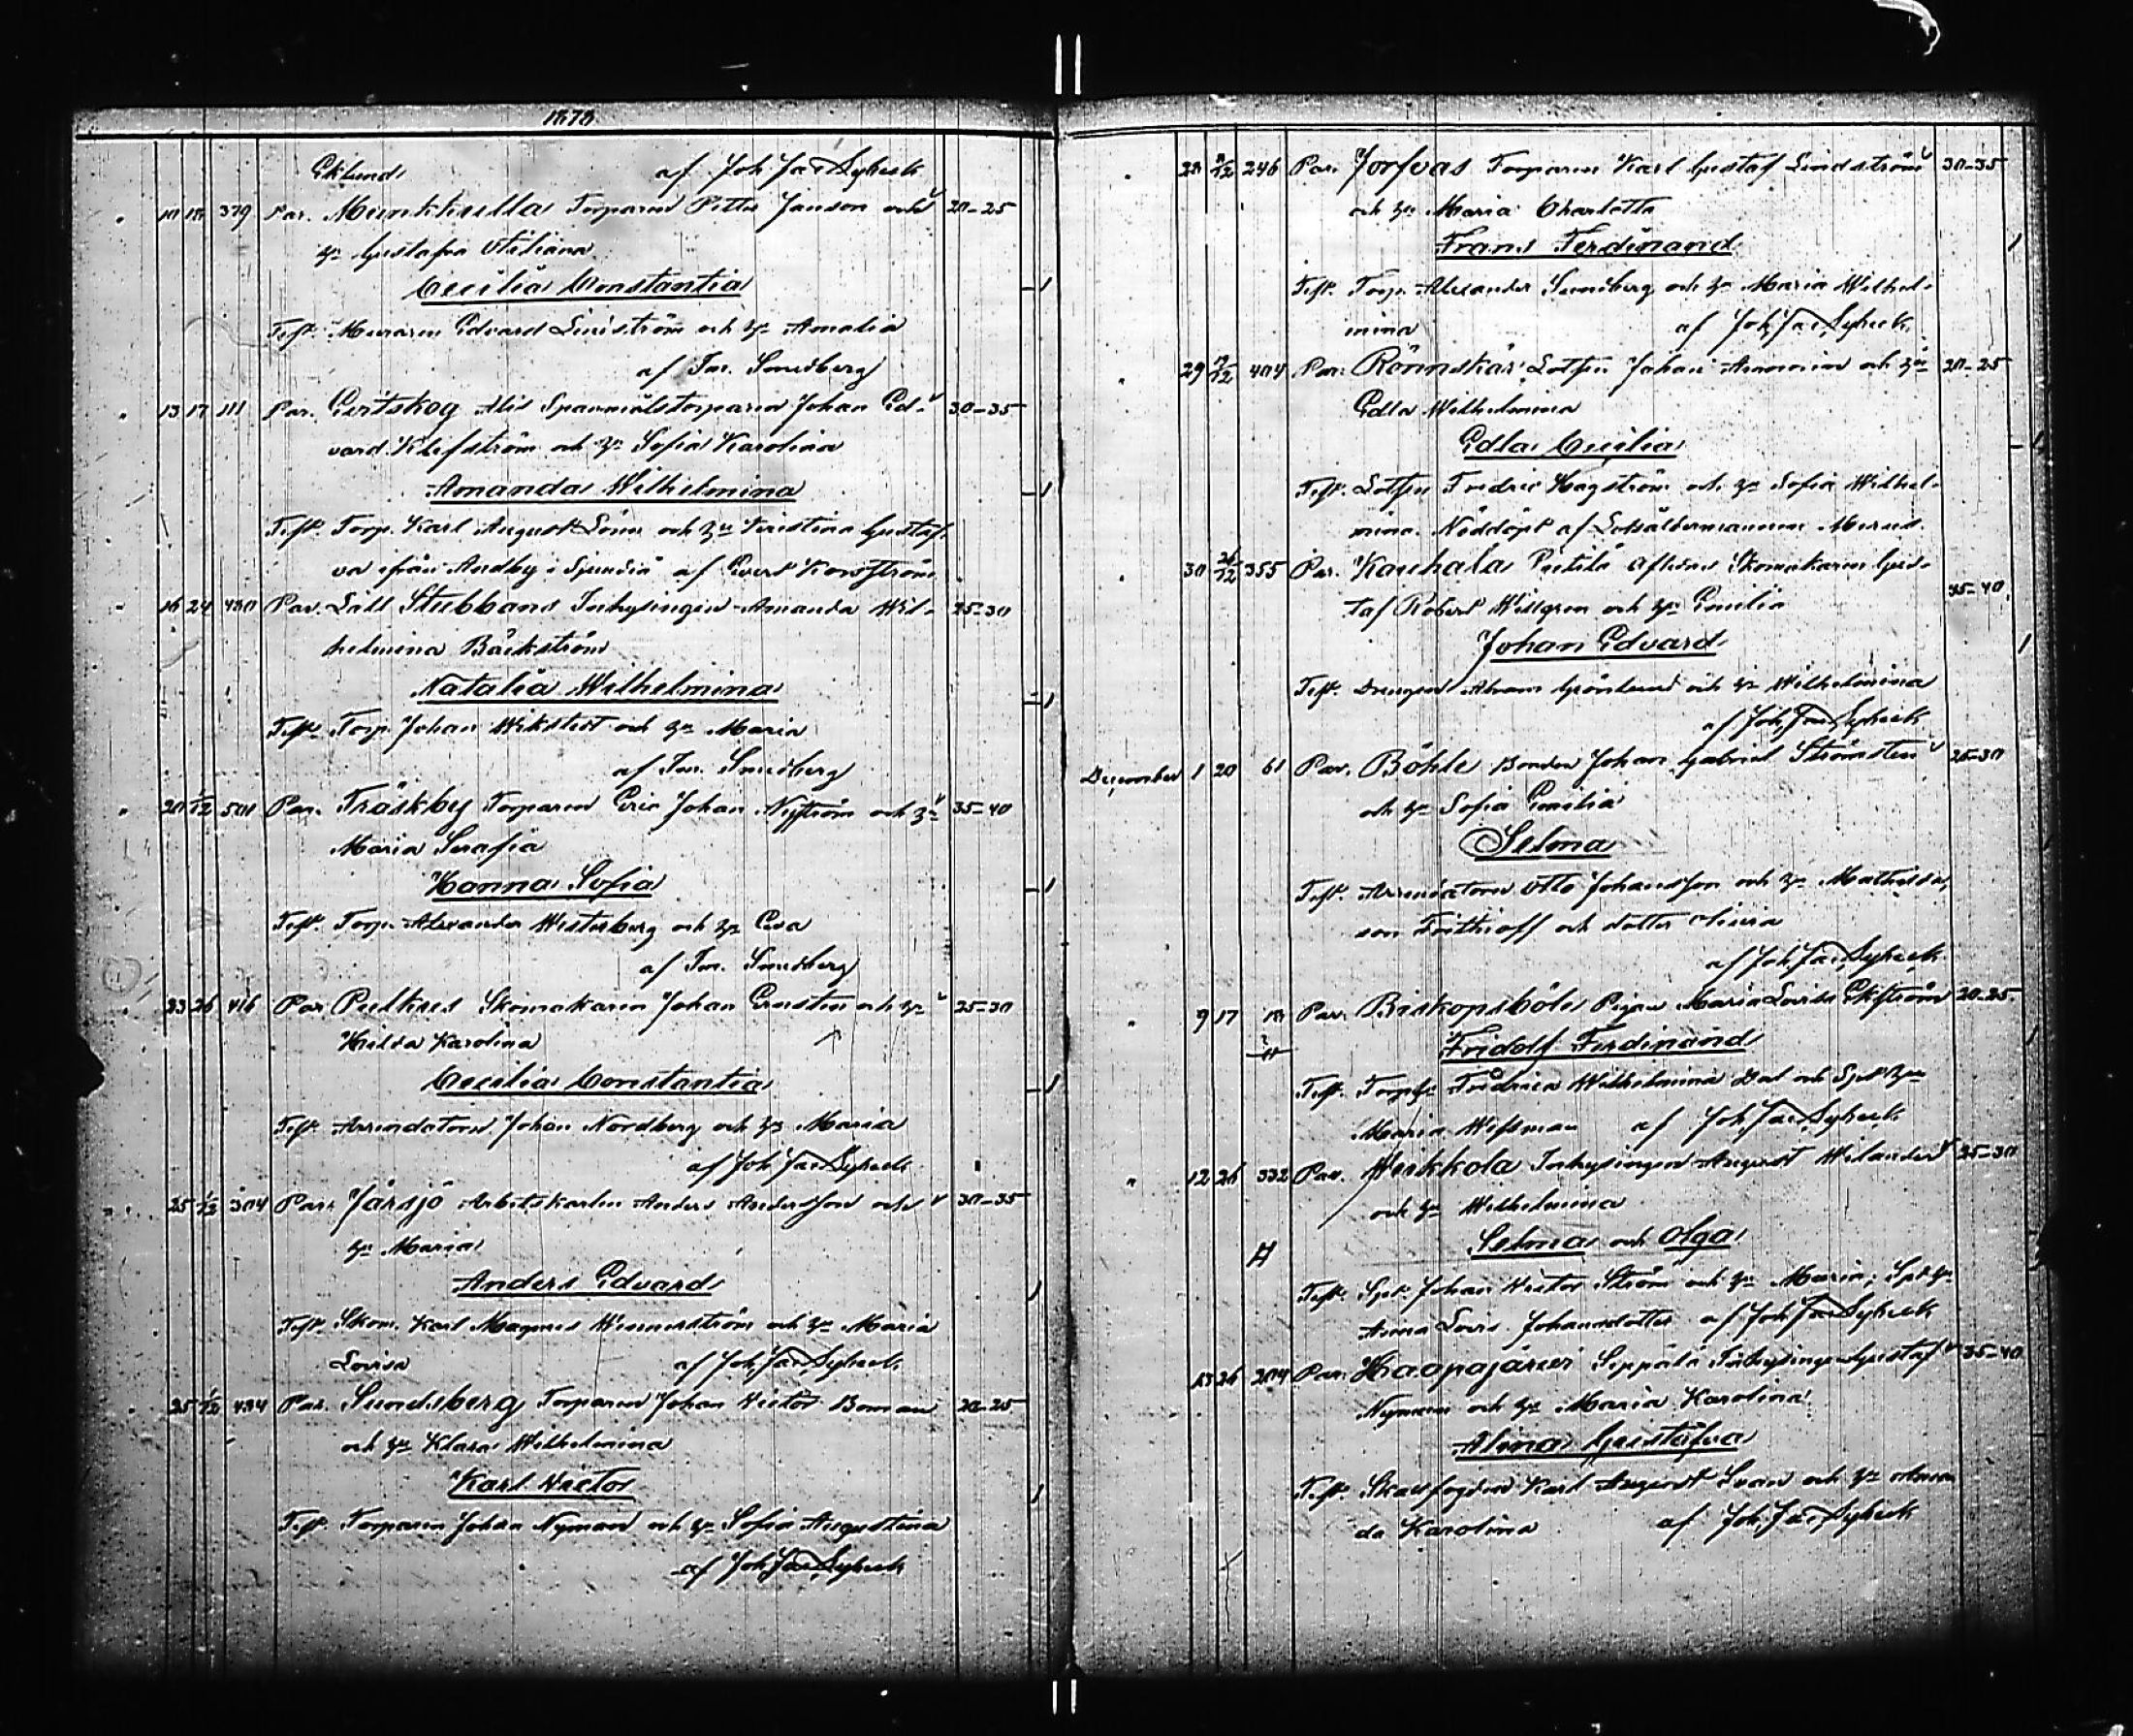 1878
Eklund af Joh. Jac. Dybeck
10 18 379 Par. Munkkulla Torparen Petter Janson och 20-25
h:u Gustafva Otiliana
Cecilia Constantia
Test. Muraren Edvard Lindström och h:u Amalia
af Im. Smedberg
13 17 111 Par. Evitskog Alis Spannmålstorparen Johan Ed- 30-35
vard Klifström och h:u Sofia Karolina
Amanda Wilhelmina
Test. Torp. Karl August och h:u Kristina Gustaf-
va ifrån Andby i Sjundiå af Evert
16 24 480 Par. Lill Stubbans Inhysingen Amanda Wil- 25-30
helmina Bäckström
Natalia Wilhelmina
Test. Torp. Johan Wikstedt och h:u Maria
af Im. Smedberg
20 1/12 500 Par. Träskby Torparen Eric Johan Nyström och h:u 35-40
Maria Serafia
Hanna Sofia
Test. Torp. Alexander Westerberg och h:u Eva
af Im. Smedberg
23 26 416 Par. Peltus Skomakaren Johan Ernsten och h:u 25-30
Hilda Karolina
Cecilia Constantia
Test. Arrendatorn Johan Nordberg och h:u Maria
af Joh. Jac. Dybeck
25 1/12 304 Par. Jårsjö Arbetskarlen Anders Andersson och 30-35
h:u Maria
Anders Edvard
Test. Skom. Karl Magnus Wennerström och h:u Maria
Lovisa af Joh. Jac. Dybeck
25 1/12 434 Par. Sundsberg Torparen Johan Victor Boman 20-25
och h:u Klara Wilhelmina
Karl Victor
Test. Torparen Johan Nyman och h:u Sofia Augustina
af Joh. Jac. Dybeck
28 246 Par. Jorfvas Torparen Karl Gustaf Lindström 30-35
och h:u Maria Charlotta
Frans Ferdinand
Test. Torp. Alexander Sundberg och h:u Maria Wilhel-
mina af Joh. Jac. Dybeck
29 404 Par. Rönnskär Lotsen Johan och h:u 20-25
Edla Wilhelmina
Edla Cecilia
Test. Lotsen Fredric Hagström och h:u Sofia Wilhel-
mina. Nöddöpt af Lotsåldermannen
30 26/12 355 Par. Kauhala Pietilä Aflidne Skomakaren Gus-
taf Robert Willgren och h:u Emilia 35-40
Johan Edvard
Test. Drengen Abram Grönlund och h:u Wilhelmina
af Joh. Jac. Dybeck
December 1 20 61 Par. Böhle Bonden Johan Gabriel Strömsten 25-30
och h:u Sofia Emilia
Selma
Test. Arrendatorn Otto Johansson och h:u Mathilda,
son Frithioff och dotter
af Joh. Jac. Dybeck
9 17 18 Par. Biskopsböle Pigan Maria Lovisa Ekström 20-25
Fridolf Ferdinand
Test. Torp. h:u Fredrica Wilhelmina Dal och Sjel. h:u
Maria af Joh. Jac. Dybeck
12 26 332 Par. Weikkola Inhysingen August Wilander 25-30
och h:u Wilhelmina
Selma och Olga
Test. Sjel. Johan Victor Ström och h:u Maria; Spt. h:u
Anna Lovis. Johansdotter af Joh. Jac. Dybeck
13 26 204 Par. Haapajärvi Seppälä Inhysingen Gustaf 35-40
Nyman och h:u Maria Karolina
Alma Gustafva
Test. Skallfogden Karl August Svan och h:u Aman-
da Karolina af Joh. Jac. Dybeck